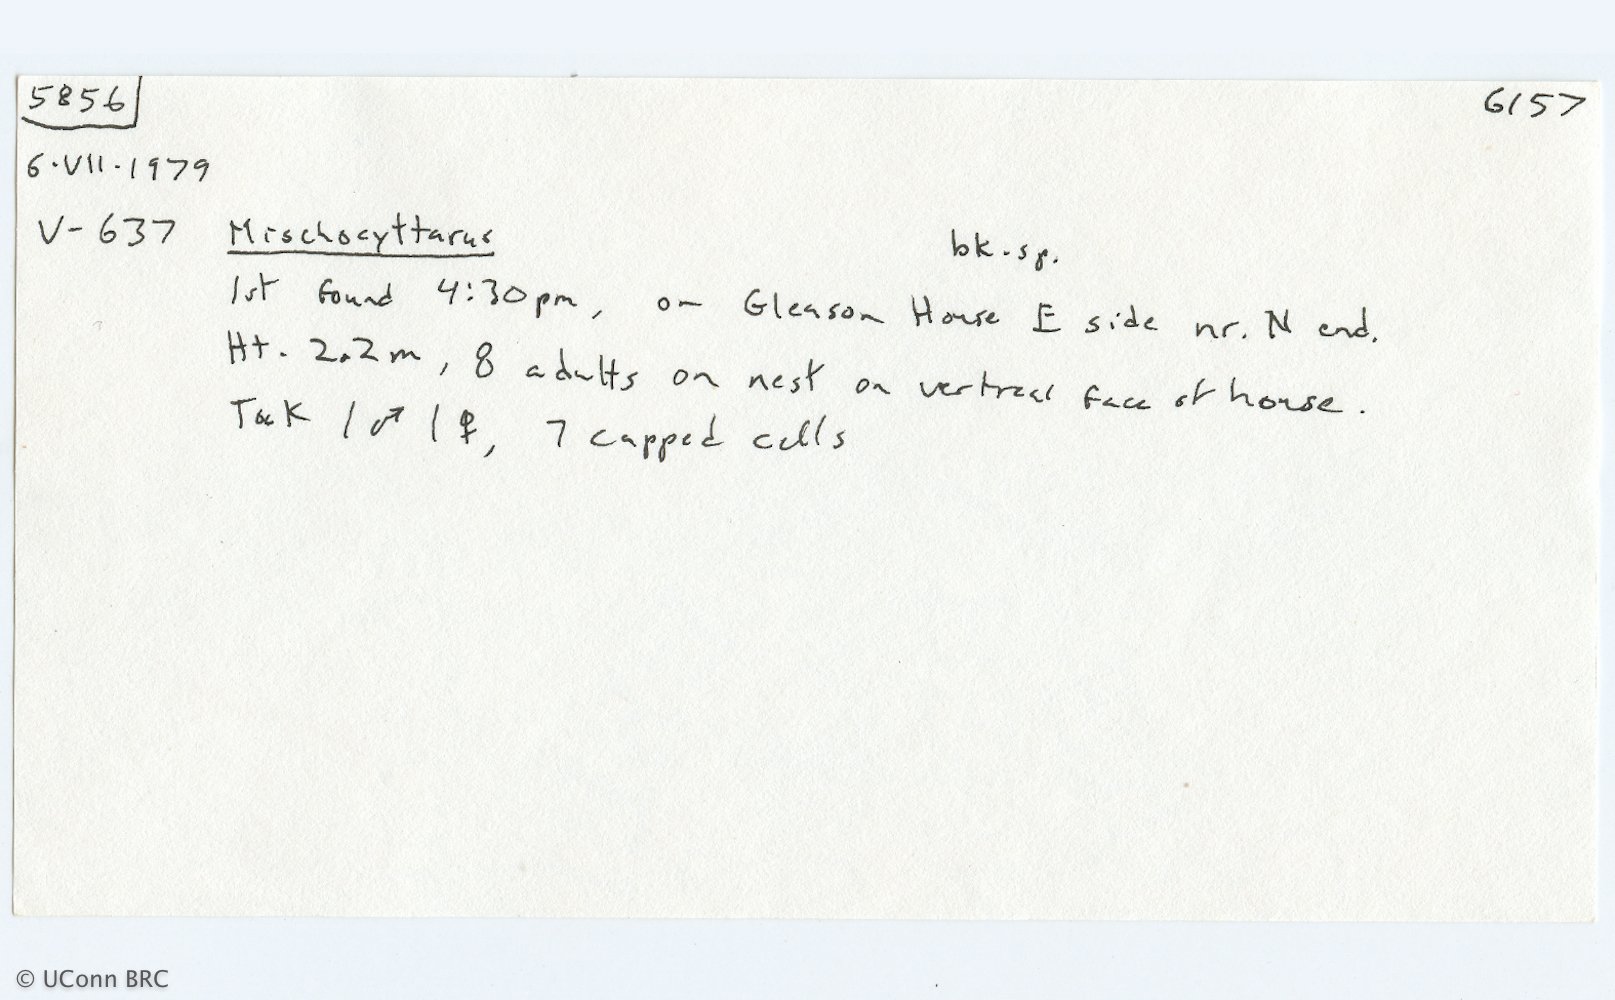 5856 6157
6.VII.1979
V-637 Mischocyttarus bk.sp.
1st found 4:30pm, on Gleason House E side nr. N end.
Ht. 2.2m, 8 adults on nest on vertical face of house.
Took 1♂ 1♀, 7 capped cells
© UConn BRC